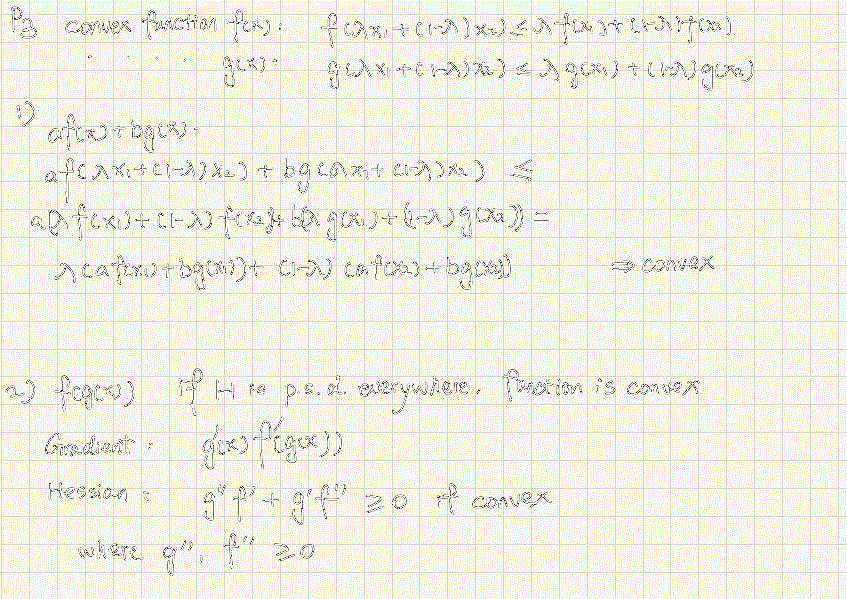 P3 convex function f(x): f(λx₁+(1-λ)x₂) ≤ λf(x₁)+(1-λ)f(x₂)
. . . . g(x): g(λx₁+(1-λ)x₂) ≤ λg(x₁)+(1-λ)g(x₂)
1)
af(x)+bg(x):
af(λx₁+(1-λ)x₂) + bg(λx₁+(1-λ)x₂) ≤
a(λf(x₁)+(1-λ)f(x₂))+b(λg(x₁)+(1-λ)g(x₂)) =
λ(af(x₁)+bg(x₁))+ (1-λ)(af(x₂)+bg(x₂)) ⇒ convex
2) f(g(x)) If H is p.s.d. everywhere, function is convex
Gradient: g'(x) f'(g(x))
Hessian: g''f' + g'f'' ≥0 if convex
where g'', f'' ≥0